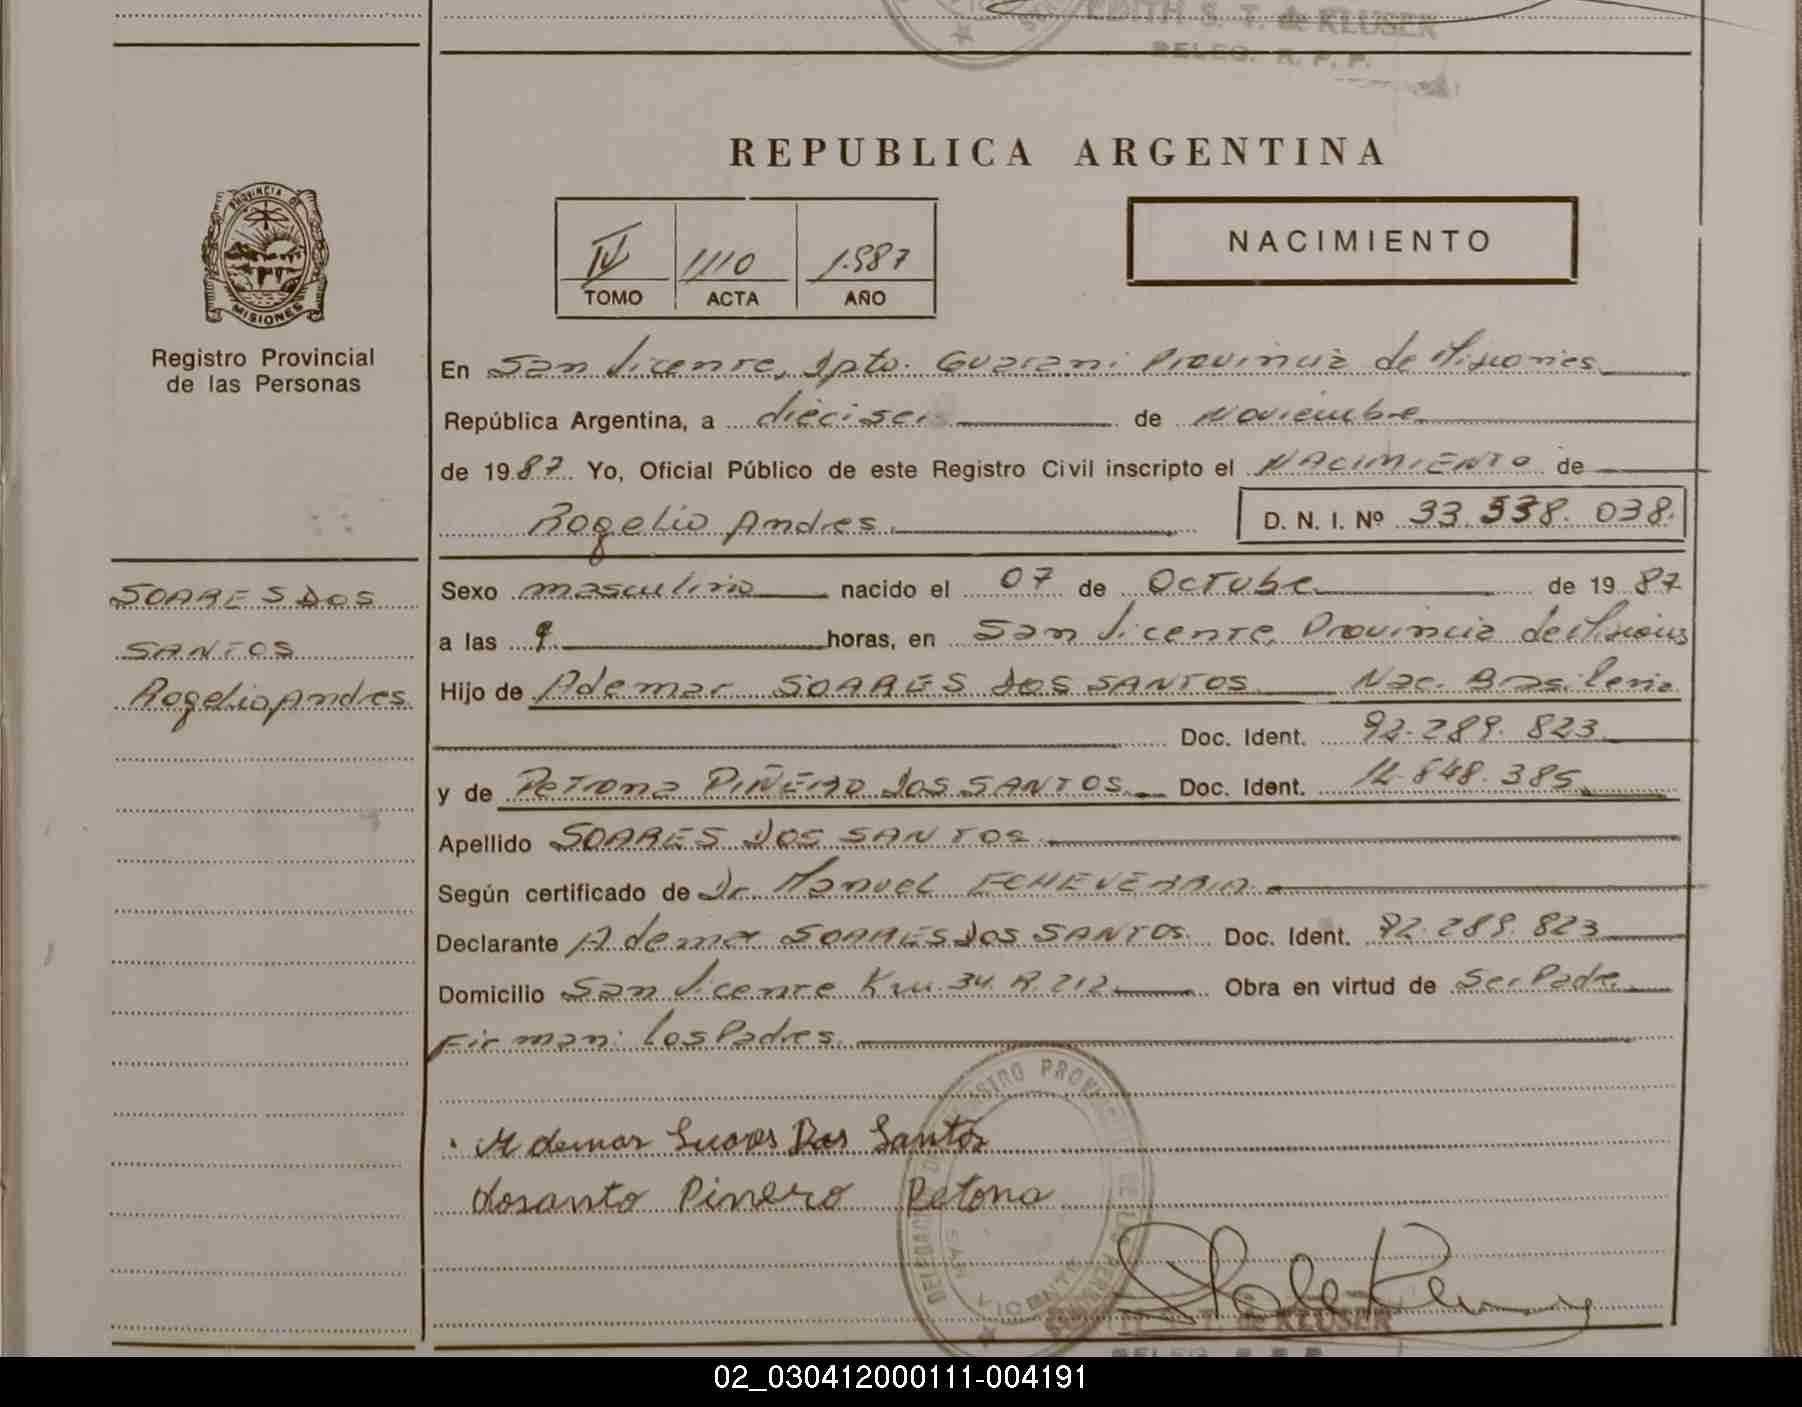 EDITH S. T. de KLUSER
DELEG. R. P. P.
REPUBLICA ARGENTINA
PROVINCIA DE
MISIONES
Registro Provincial
de las Personas
IV 1110 1.987
TOMO ACTA AÑO
NACIMIENTO
En San Vicente, Dpto. Guarani Provincia de Misiones
República Argentina, a dieciseis de Noviembre
de 1987 Yo, Oficial Público de este Registro Civil inscripto el NACIMIENTO de
Rogelio Andres
D. N. I. Nº 33.538.038.
SOARES DOS
SANTOS
Rogelio Andres
Sexo masculino nacido el 07 de Octubre de 1987
a las 9 horas, en San Vicente, Provincia de Misiones
Hijo de Ademar SOARES DOS SANTOS Nac. Brasilera
Doc. Ident. 92.289.823
y de Petrona PIÑEIRO DOS SANTOS Doc. Ident. 12.848.385
Apellido SOARES DOS SANTOS
Según certificado de Dr. Manuel ECHEVERRIA
Declarante Ademar SOARES DOS SANTOS Doc. Ident. 92.289.823
Domicilio San Vicente Km. 34 R. 212 Obra en virtud de Ser Padre
Firman: Los Padres
Ademar Suares Dos Santos
dosanto Pinero Petona
SAN VICENTE
S. T. de KLUSER
DELEG. R. P. P.
02_030412000111-004191